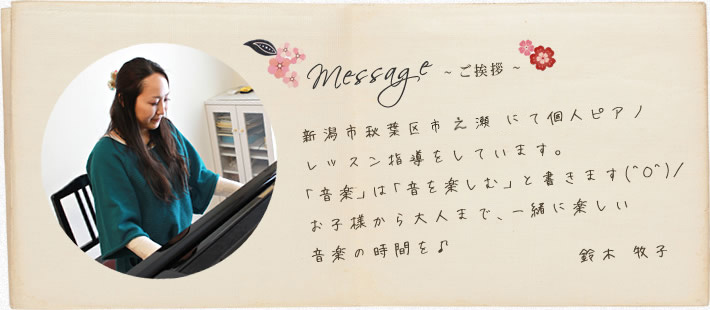 Message ~ ご挨拶 ~
新潟市秋葉区市之瀬にて個人ピアノ
レッスン指導をしています。
「音楽」は「音を楽しむ」と書きます(^O^)/
お子様から大人まで、一緒に楽しい
音楽の時間を♪
鈴木 牧子